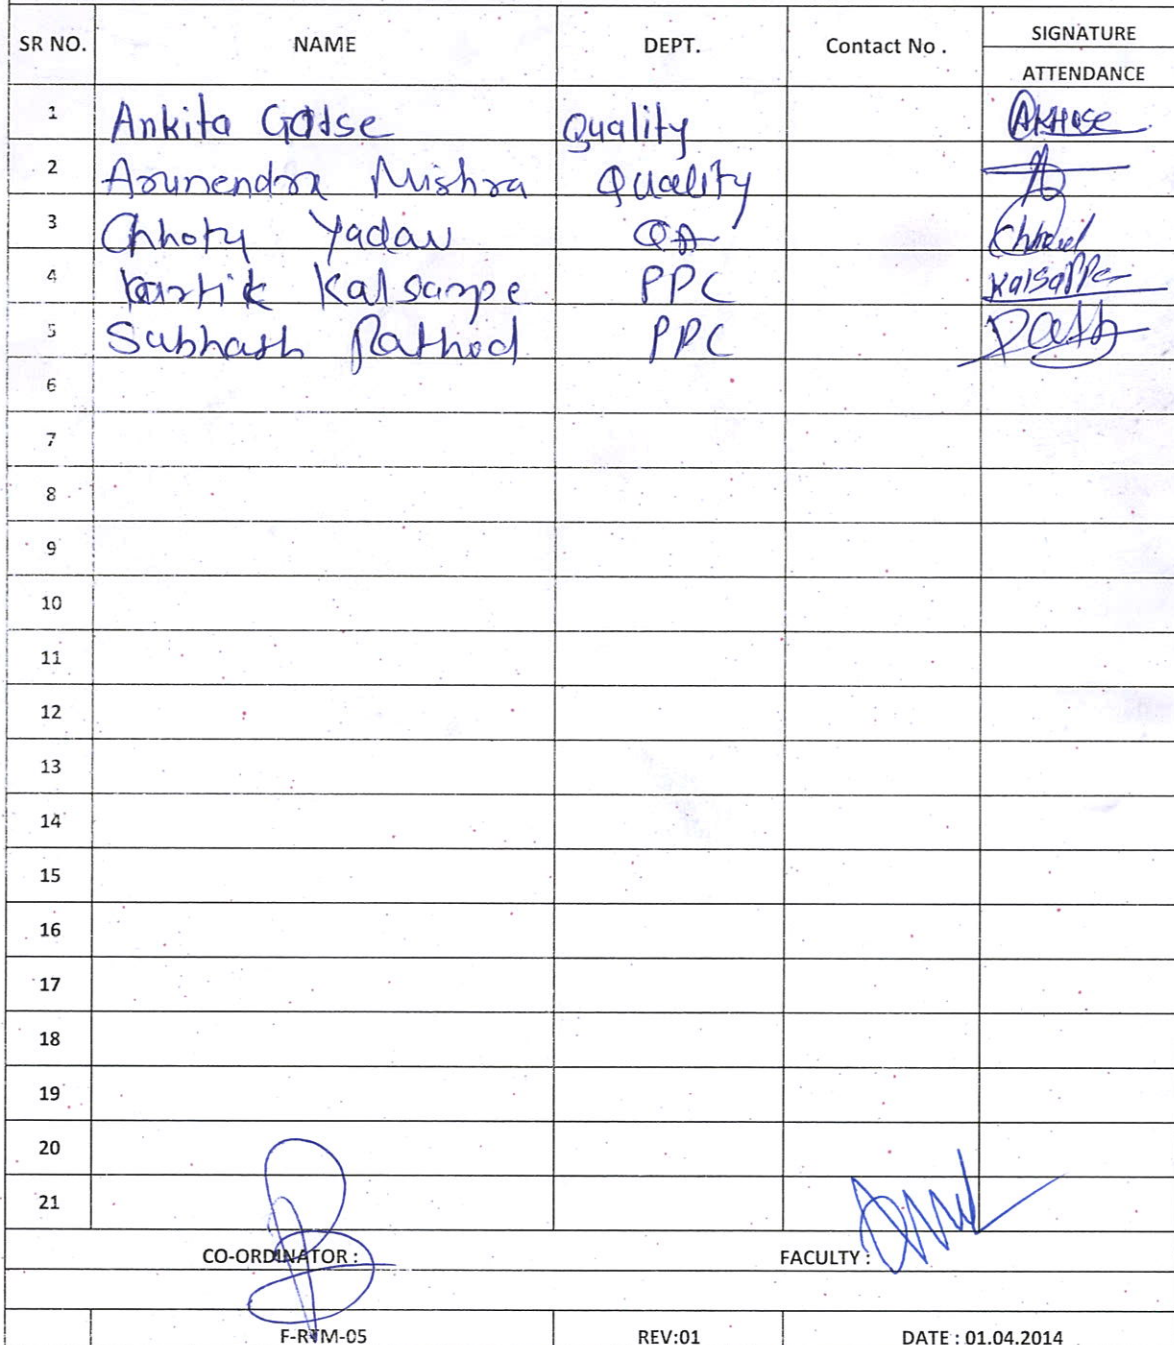 SR NO. NAME DEPT. Contact No . SIGNATURE
ATTENDANCE
1 Ankita Godse Quality
2 Arunendra Mishra Quality
3 Chhoty Yadav QA
4 Kartik Kalsarpe PPC Kalsarpe
5 Subhash Rathod PPC
6
7
8
9
10
11
12
13
14
15
16
17
18
19
20
21
CO-ORDINATOR : FACULTY :
F-RTM-05 REV:01 DATE : 01.04.2014